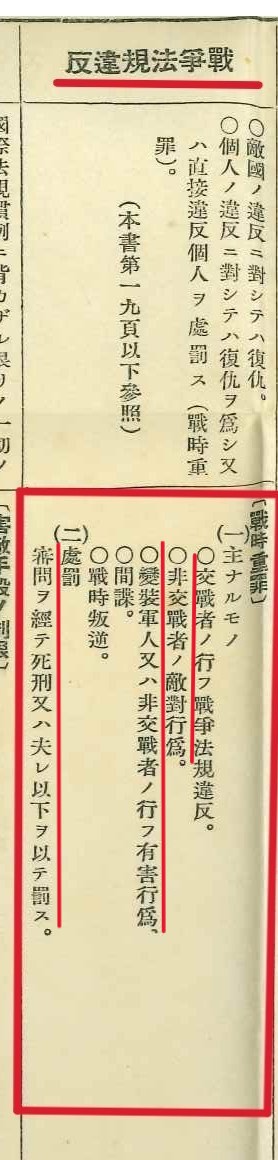 反違規法爭戰
○敵國ノ違反ニ對シテハ復仇。
○個人ノ違反ニ對シテハ復仇ヲ爲シ又
ハ直接違反個人ヲ處罰ス(戰時重
罪)。
(本書第一九頁以下參照)
〔戰時重罪〕
(一)主ナルモノ
○交戰者ノ行フ戰爭法規違反。
○非交戰者ノ敵對行爲。
○變裝軍人又ハ非交戰者ノ行フ有害行爲。
○間諜。
○戰時叛逆。
(二)處罰
審問ヲ經テ死刑又ハ夫レ以下ヲ以テ罰ス。